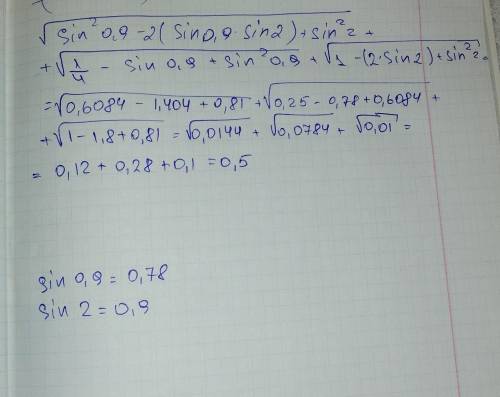 √(sin²0,9 - 2(sin0,9 · sin2) + sin²2) +
+ √(1/4 - sin 0,9 + sin²0,9) + √(1 - (2·sin2) + sin²2) =
= √(0,6084 - 1,404 + 0,81) + √(0,25 - 0,78 + 0,6084) +
+ √(1 - 1,8 + 0,81) = √0,0144 + √0,0784 + √0,01 =
= 0,12 + 0,28 + 0,1 = 0,5
sin 0,9 = 0,78
sin 2 = 0,9